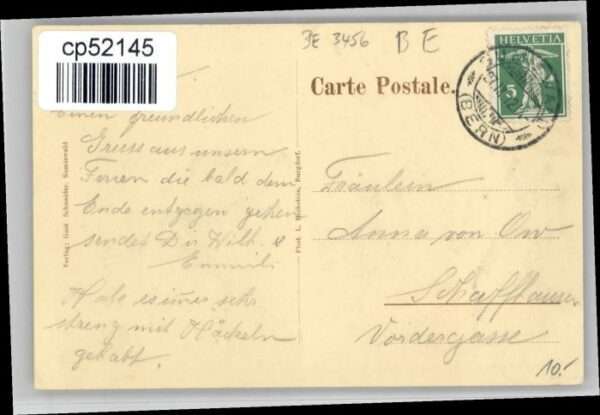 cp52145
BE 3456 BE
HELVETIA
5
(BERN)
Carte Postale.
Einen freundlichen
Gruss aus unsern
Ferien die bald dem
Ende entgegen gehen
sendet Dir Willi &
Emmili
Habe es immer sehr
streng mit Häckeln
gehabt.
Verlag: Gust Schneider, Sumiswald
Phot. L. Bechstein, Burgdorf.
Fräulein
Anna von Ow
Schaffhausen
Vordergasse
10.-